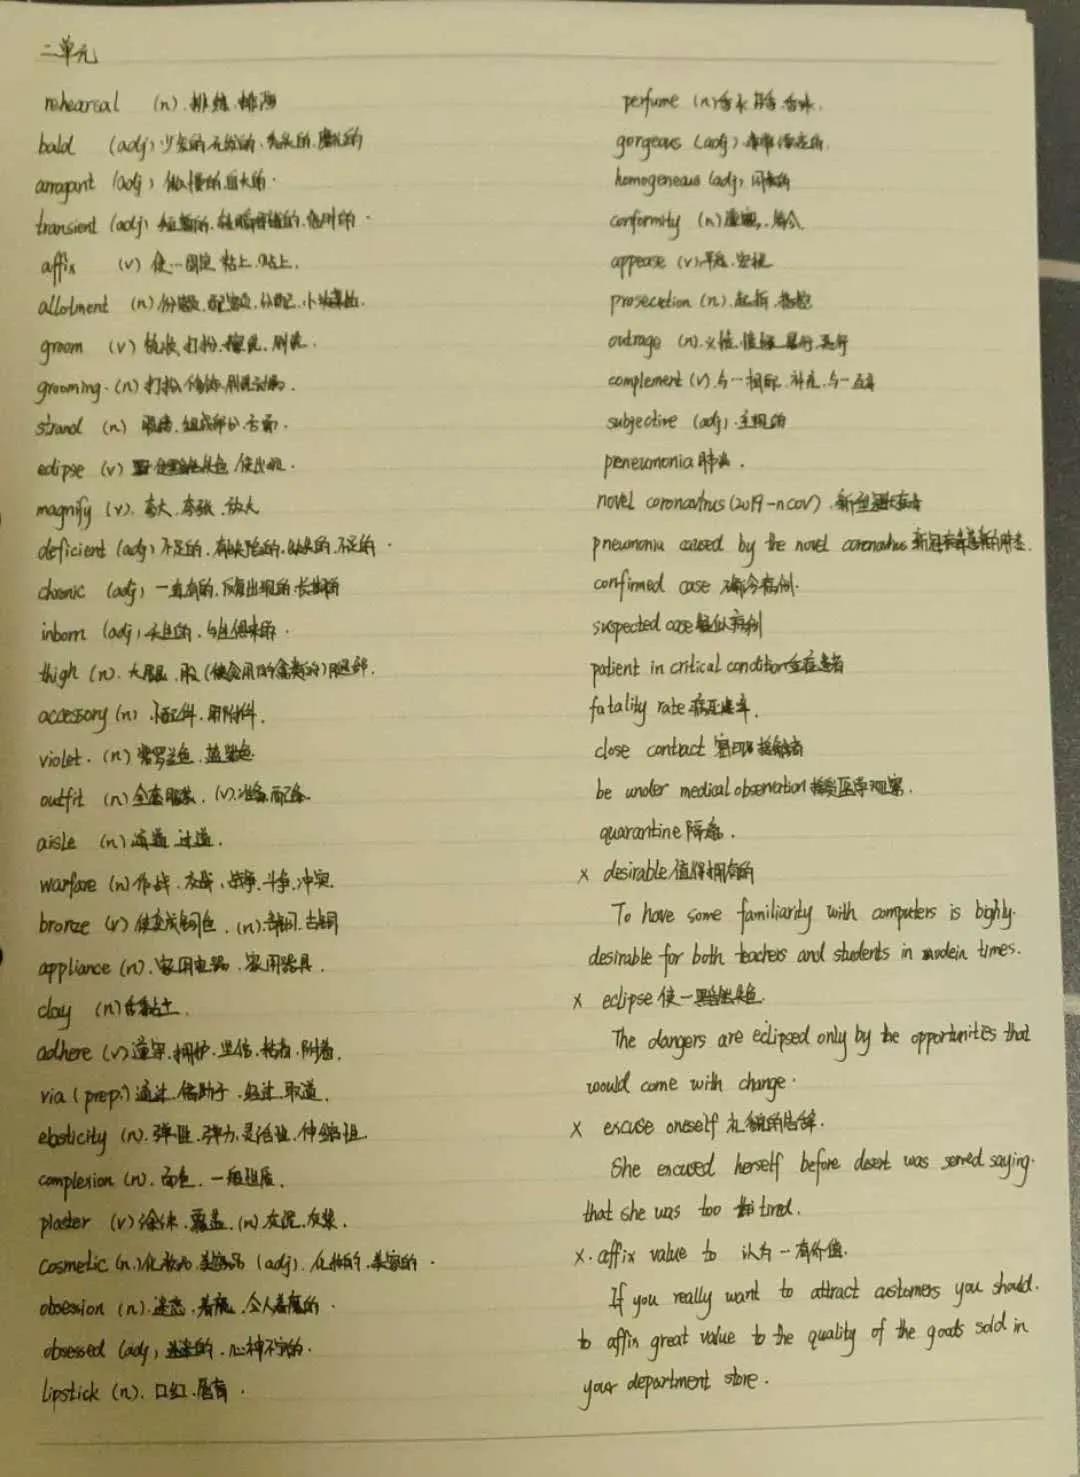 二单元
rehearsal (n). 排练. 排演
bald (adj) 少发的.无发的. 秃头的. 磨光的
arragant (adj) 傲慢的.自大的.
transient (adj) 短暂的. 转瞬即逝的. 临时的.
affix (v) 使…固定 粘上. 贴上.
allotment (n) 份额. 配额. 分配. 小块
groom (v) 梳妆. 打扮. 擦洗. 刷洗.
grooming. (n) 打扮. 刷洗
strand (n) 组成部分. 方面.
eclipse (v) 使黯然失色. 使出
magnify (v). 夸大. 夸张. 放大
deficient (adj) 不足的. 有缺陷的. 缺失的. 不足的.
chronic (adj) 一直有的. 反复出现的. 长期的
inborn (adj) 天生的. 与生俱来的.
thigh (n). 大腿. 股 (供食用的禽类的) 腿部.
accessory (n) 配件. 附件.
violet. (n) 紫罗兰色. 蓝紫色
outfit (n) 全套服装. (v). 准备. 配备
aisle (n) 通道. 过道.
warfare (n) 作战. 交战. 战争. 斗争. 冲突
bronze (v) 使变成铜色. (n). 青铜. 古铜
appliance (n). 家用电器. 家用器具.
clay (n) 黏土.
adhere (v) 遵守. 拥护. 坚信. 粘着. 附着.
via (prep.) 通过. 借助于. 经过. 取道.
elasticity (n). 弹性. 弹力. 灵活性. 伸缩性.
complexion (n). 面色. 一般性质.
plaster (v) 涂抹. 覆盖. (n) 灰泥. 灰浆.
cosmetic (n.) 化妆品. 美容品 (adj). 化妆的. 美容的.
obsession (n). 迷恋. 着魔. 令人着魔的.
obsessed (adj) 迷恋的. 心神不宁的.
lipstick (n). 口红. 唇膏.
perfume (n) 香水. 香味.
gorgeous (adj) 非常漂亮的.
homogeneous (adj) 同类的
conformity (n) 遵守.
appease (v). 平息. 安抚
prosecution (n). 起诉. 指控
outrage (n). 义愤. 愤慨. 暴行. 恶行
complement (v). 与…相配. 补充. 与…互补
subjective (adj). 主观的
peneumonia 肺炎.
novel coronavirus (2019-nCoV). 新型冠状病毒
pneumonia caused by the novel coronavirus 新冠病毒感染的肺炎.
confirmed case 确诊病例.
suspected case 疑似病例
patient in critical condition 重症患者
fatality rate 病死率.
close contact 密切接触者
be under medical observation 接受医学观察.
quarantine 隔离.
× desirable 值得拥有的
To have some familiarity with computers is highly.
desirable for both teachers and students in modein times.
× eclipse 使…黯然失色.
The dangers are eclipsed only by the opportunities that
would come with change.
× excuse oneself 礼貌的告辞.
She excused herself before desert was served saying.
that she was too tired.
×. affix value to 认为…有价值.
If you really want to attract customers you should.
to affin great value to the quality of the goods sold in
your department store.